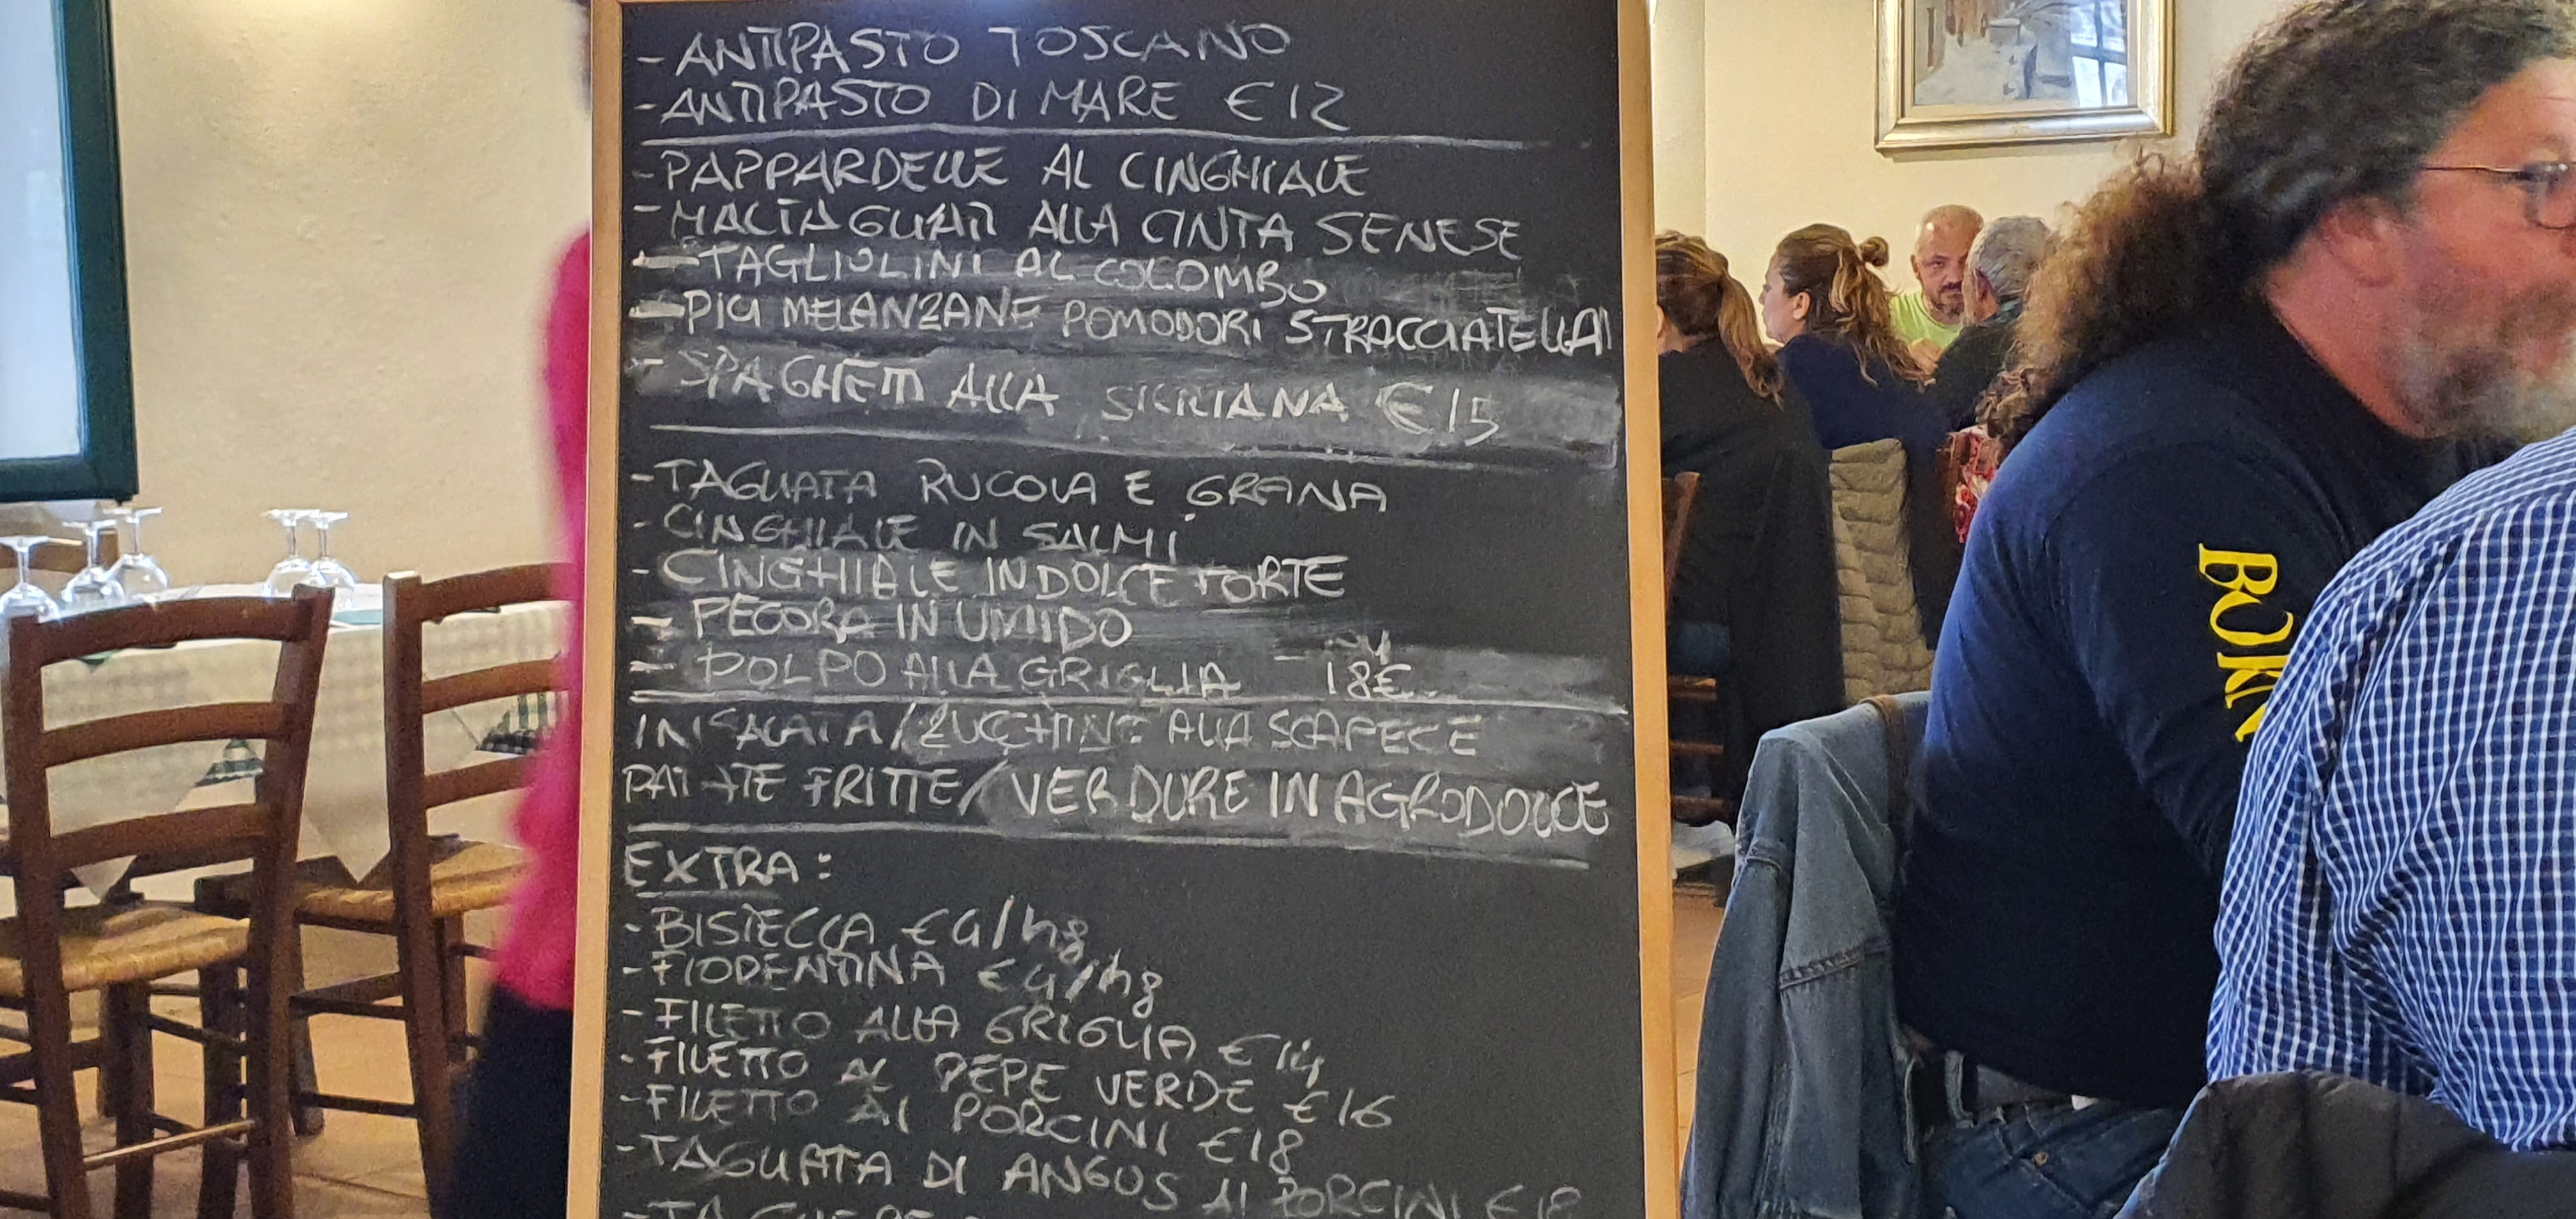 - ANTIPASTO TOSCANO
- ANTIPASTO DI MARE €12
- PAPPARDELLE AL CINGHIALE
- MALTAGLIATI ALLA CINTA SENESE
- TAGLIOLINI AL COLOMBO
- PICI MELANZANE POMODORI STRACCIATELLA
- SPAGHETTI ALLA SICILIANA €15
- TAGLIATA RUCOLA E GRANA
- CINGHIALE IN SALMI
- CINGHIALE IN DOLCE FORTE
- PECORA IN UMIDO
- POLPO ALLA GRIGLIA - 18€
INSALATA / ZUCCHINE ALLA SCAPECE
PATATE FRITTE / VERDURE IN AGRODOLCE
EXTRA:
- BISTECCA €4/hg
- FIORENTINA €4/hg
- FILETTO ALLA GRIGLIA €14
- FILETTO AL PEPE VERDE €16
- FILETTO AI PORCINI €18
- TAGLIATA DI ANGUS AI PORCINI €18
BORN